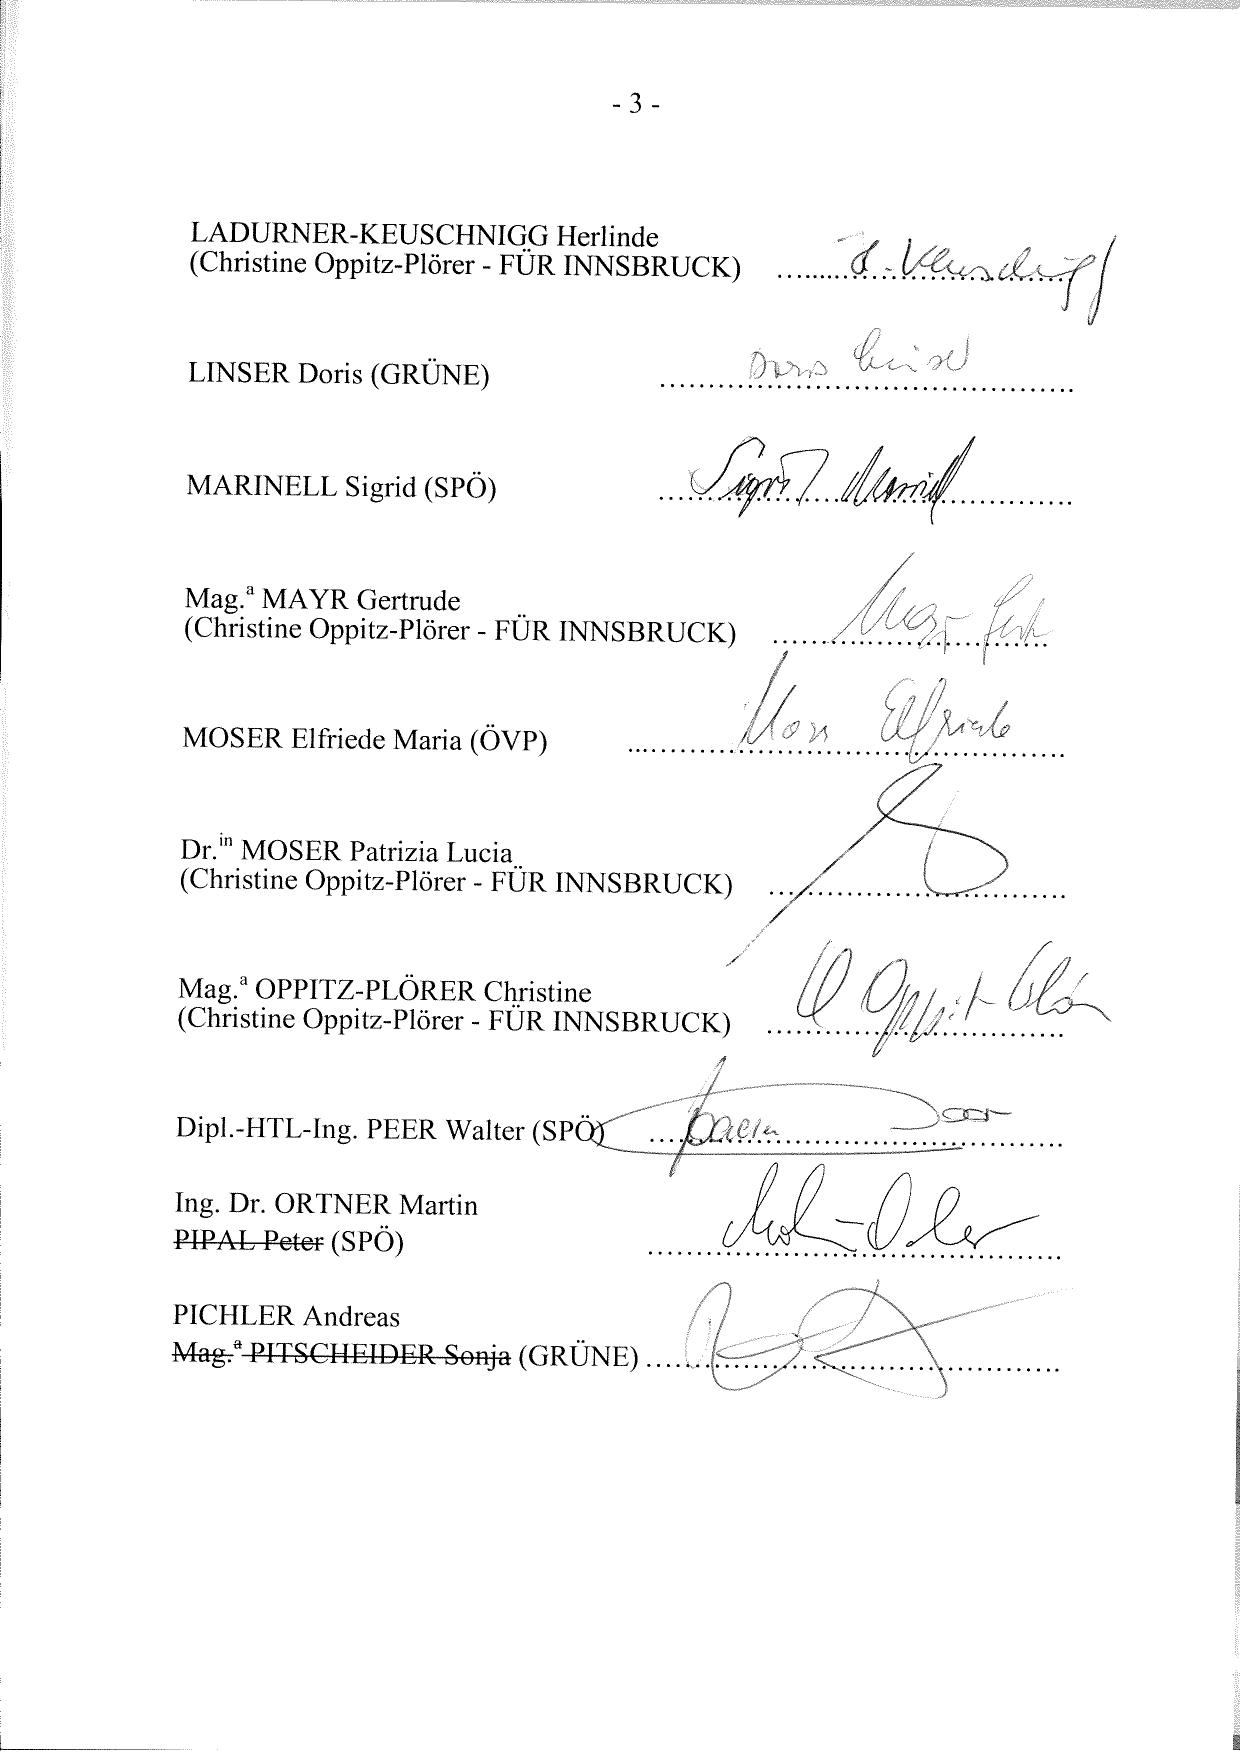 - 3 -
LADURNER-KEUSCHNIGG Herlinde
(Christine Oppitz-Plörer - FÜR INNSBRUCK) .........H. Keuschnigg
LINSER Doris (GRÜNE) Doris Linser
MARINELL Sigrid (SPÖ) Sigrid Marinell
Mag.ª MAYR Gertrude
(Christine Oppitz-Plörer - FÜR INNSBRUCK) Mayr
MOSER Elfriede Maria (ÖVP) Moser Elfriede
Dr.in MOSER Patrizia Lucia
(Christine Oppitz-Plörer - FÜR INNSBRUCK)
Mag.ª OPPITZ-PLÖRER Christine
(Christine Oppitz-Plörer - FÜR INNSBRUCK) Oppitz-Plörer
Dipl.-HTL-Ing. PEER Walter (SPÖ)
Ing. Dr. ORTNER Martin
PIPAL Peter (SPÖ)
PICHLER Andreas
Mag.ª PITSCHEIDER Sonja (GRÜNE)